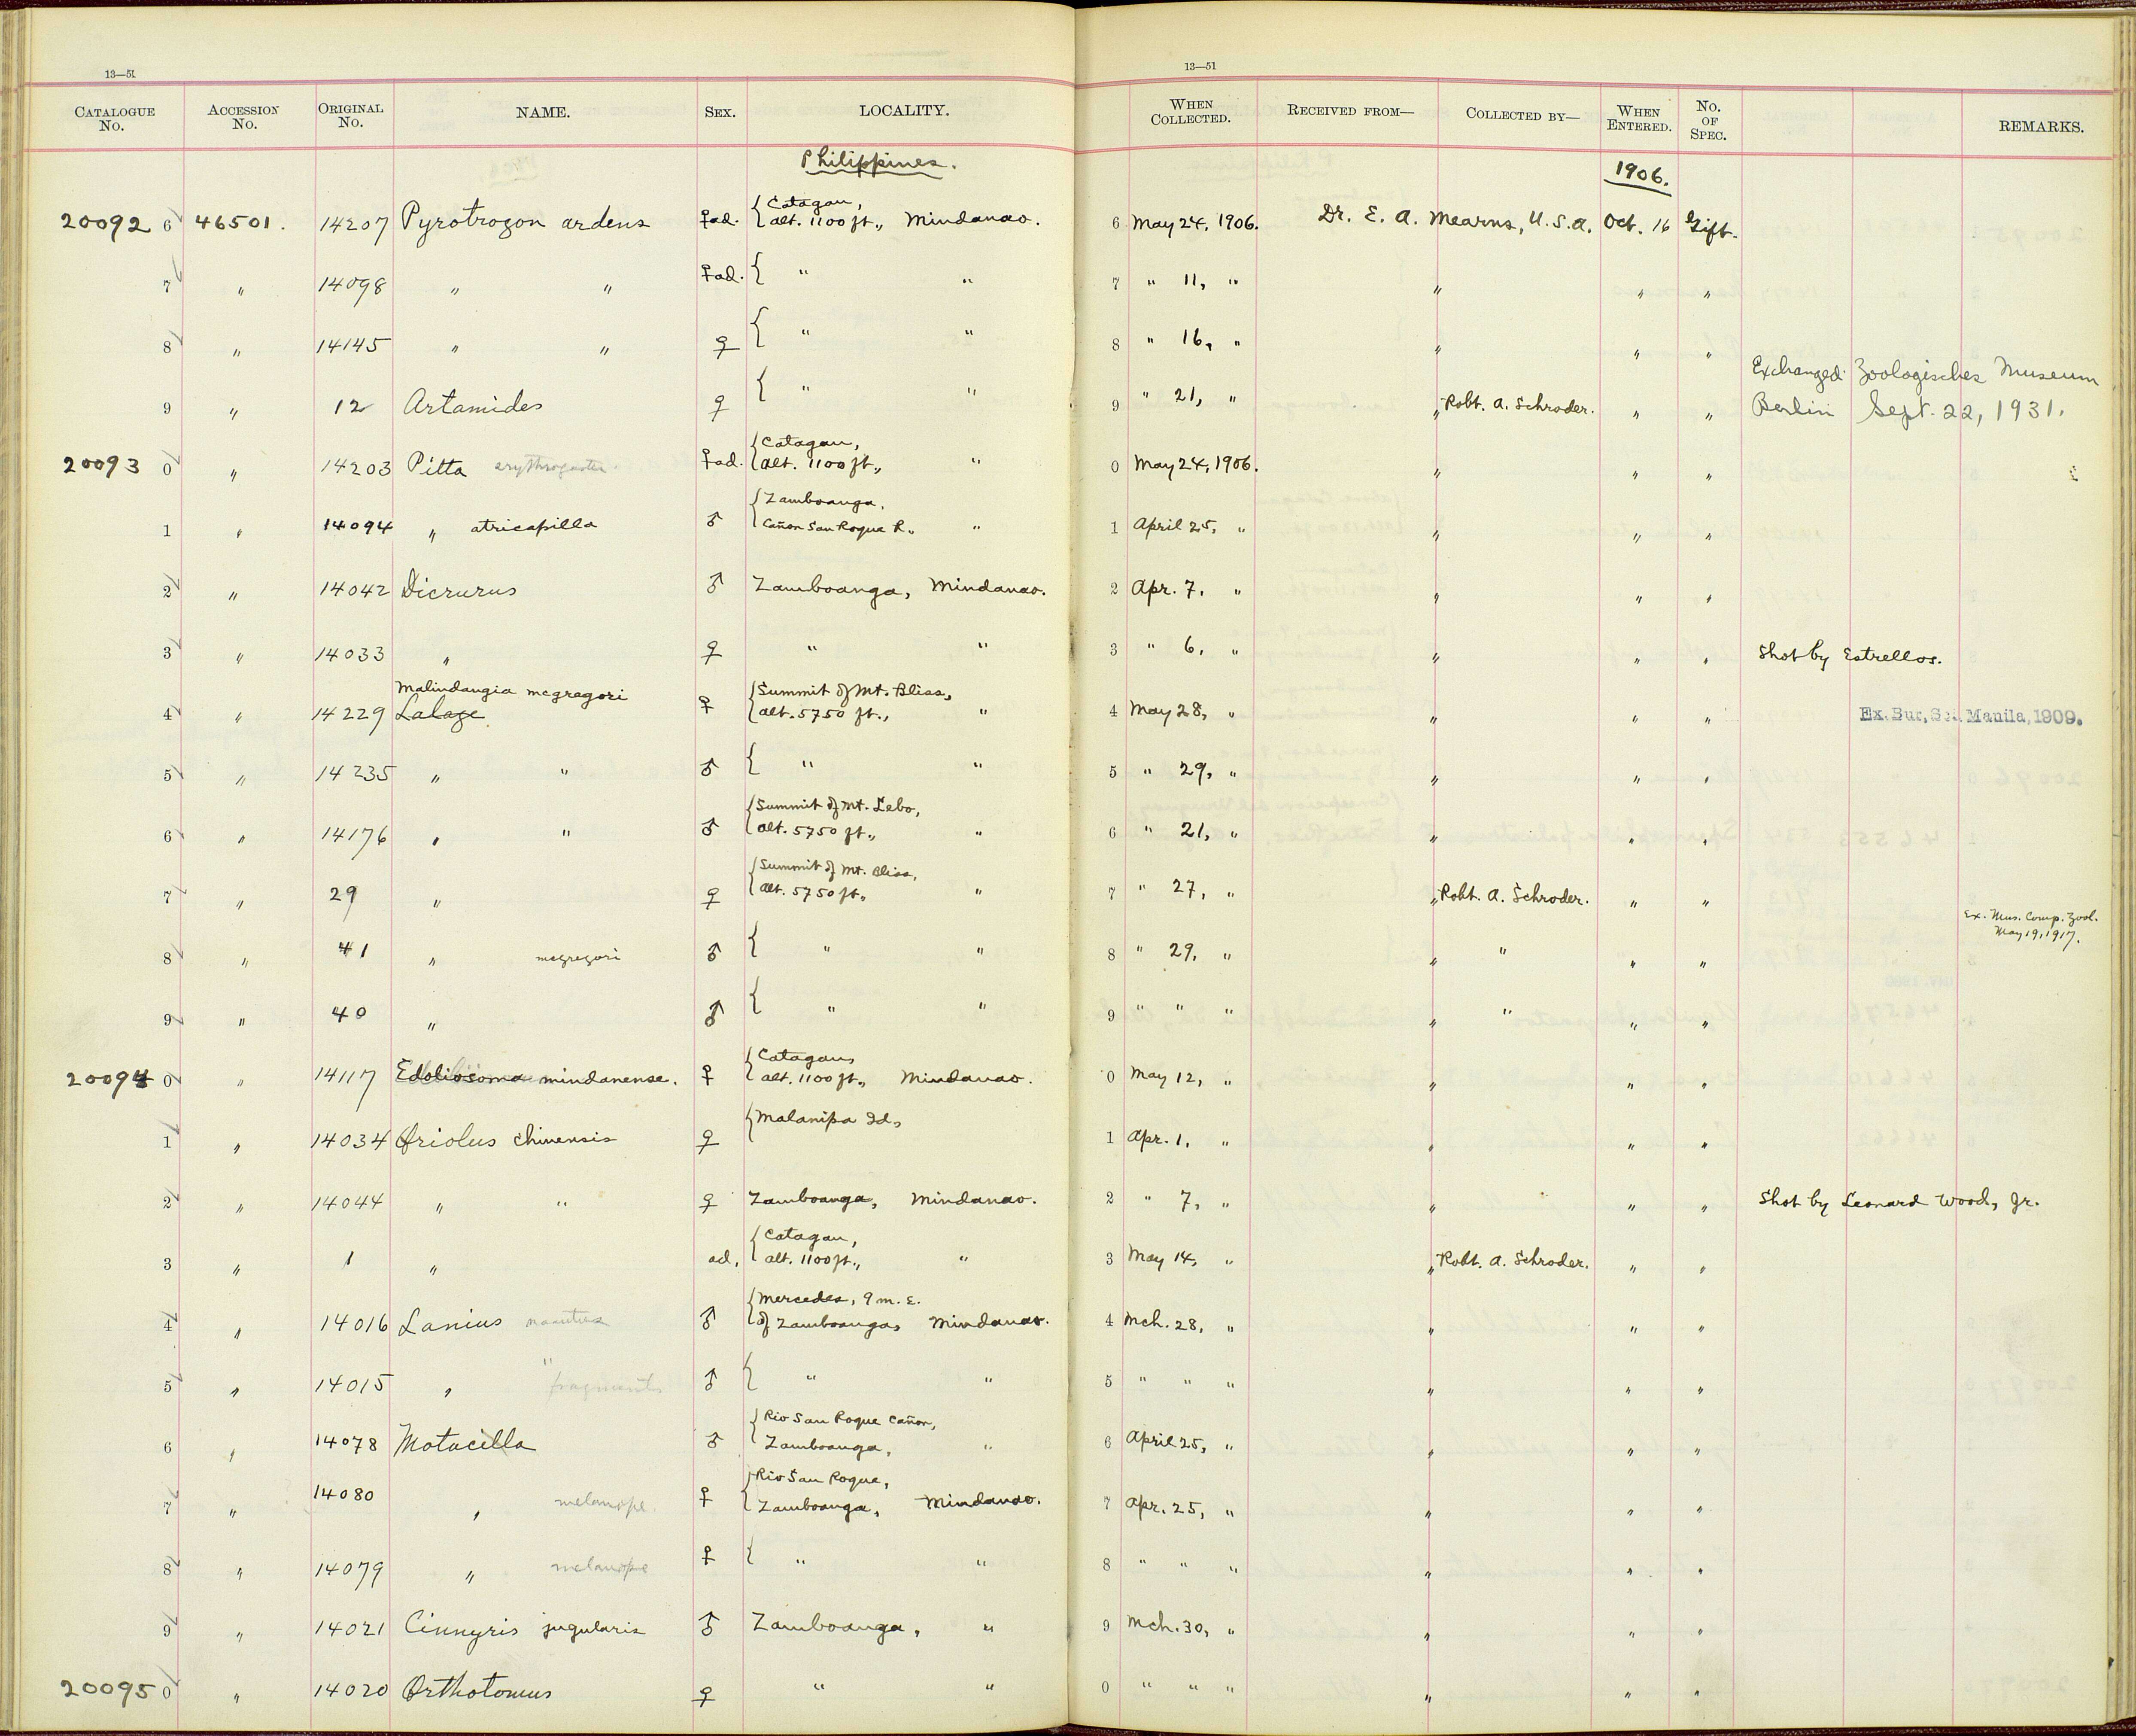 13—51 13—51
CATALOGUE No. ACCESSION No. ORIGINAL No. NAME. SEX. LOCALITY. WHEN COLLECTED. RECEIVED FROM— COLLECTED BY— WHEN ENTERED. No. OF SPEC. REMARKS.
Philippines. 1906.
20092 6 46501. 14207 Pyrotrogon ardens ♀ad. { Catagan, alt. 1100 ft., Mindanao. 6 May 24, 1906. Dr. E. A. Mearns, U.S.A. Oct. 16 Gift.
7 " 14098 " " ♀ad. { " " 7 " 11, " " " "
8 " 14145 " " ♀ { " " 8 " 16, " " " "
9 " 12 Artamides ♀ { " " 9 " 21, " " Robt. A. Schroder. " " Exchanged Zoologisches Museum Berlin Sept. 22, 1931.
20093 0 " 14203 Pitta erythrogaster ♀ad. { Catagan, alt. 1100 ft., " 0 May 24, 1906. " " "
1 " 14094 " atricapilla ♂ { Zamboanga, Cañon San Roque R., " 1 April 25, " " " "
2 " 14042 Dicrurus ♂ Zamboanga, Mindanao. 2 Apr. 7, " " " "
3 " 14033 " ♀ " " 3 " 6, " " " " Shot by Estrellos.
Malindangia mcgregori
4 " 14229 Lalage ♀ { Summit of Mt. Bliss, alt. 5750 ft., " 4 May 28, " " " " Ex. Bur. Sc. Manila, 1909.
5 " 14235 " " ♂ { " " 5 " 29, " " " "
6 " 14176 " " ♂ { Summit of Mt. Lebo, alt. 5750 ft., " 6 " 21, " " " "
7 " 29 " ♀ { Summit of Mt. Bliss, alt. 5750 ft., " 7 " 27, " " Robt. A. Schroder. " "
Ex. Mus. Comp. Zool. May 19, 1917.
8 " 41 " mcgregori ♂ { " " 8 " 29, " " " " "
9 " 40 " ♂ { " " 9 " " " " " " "
20094 0 " 14117 Edoliosoma mindanense. ♀ { Catagan, alt. 1100 ft., Mindanao. 0 May 12, " " " "
1 " 14034 Oriolus chinensis ♀ { Malanipa Id., 1 Apr. 1, " " " "
2 " 14044 " " ♀ Zamboanga, Mindanao. 2 " 7, " " " " Shot by Leonard Wood, Jr.
3 " 1 " ad. { Catagan, alt. 1100 ft., " 3 May 14, " " Robt. A. Schroder. " "
4 " 14016 Lanius nasutus ♂ { Mercedes, 9 m. E. of Zamboanga, Mindanao. 4 Mch. 28, " " " "
5 " 14015 " " ♂ { " " 5 " " " " " "
6 " 14078 Motacilla ♂ { Rio San Roque Cañon, Zamboanga, " 6 April 25, " " " "
7 " 14080 " melanope ♀ { Rio San Roque, Zamboanga, Mindanao. 7 Apr. 25, " " " "
8 " 14079 " melanope ♀ { " " 8 " " " " " "
9 " 14021 Cinnyris jugularis ♂ Zamboanga, " 9 Mch. 30, " " " "
20095 0 " 14020 Orthotomus ♀ " " 0 " " " " " "